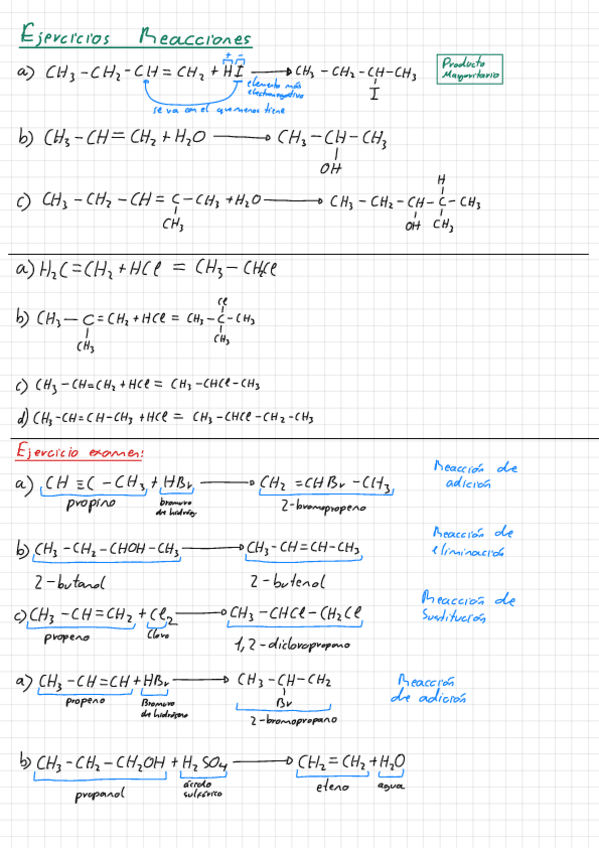 Ejercicios Reacciones
+ -
a) CH₃-CH₂-CH=CH₂+HI → CH₃-CH₂-CH-CH₃
I
Producto
Mayoritario
elemento más
electronegativo
se va con el que menos tiene
b) CH₃-CH=CH₂+H₂O → CH₃-CH-CH₃
OH
H
c) CH₃-CH₂-CH=C-CH₃+H₂O → CH₃-CH₂-CH-C-CH₃
CH₃ OH CH₃
a) H₂C=CH₂+HCl = CH₃-CH₂Cl
Cl
b) CH₃-C=CH₂+HCl = CH₃-C-CH₃
CH₃ CH₃
c) CH₃-CH=CH₂+HCl = CH₃-CHCl-CH₃
d) CH₃-CH=CH-CH₃+HCl = CH₃-CHCl-CH₂-CH₃
Ejercicio examen:
a) CH≡C-CH₃+HBr → CH₂=CHBr-CH₃
propino bromuro de hidróg 2-bromopropeno
Reacción de
adición
b) CH₃-CH₂-CHOH-CH₃ → CH₃-CH=CH-CH₃
2-butanol 2-butenol
Reacción de
eliminación
c) CH₃-CH=CH₂+Cl₂ → CH₃-CHCl-CH₂Cl
propeno Cloro 1,2-dicloropropano
Reacción de
Sustitución
a) CH₃-CH=CH+HBr → CH₃-CH-CH₂
Br
propeno Bromuro de hidrógeno 2-bromopropano
Reacción
de adición
b) CH₃-CH₂-CH₂OH+H₂SO₄ → CH₂=CH₂+H₂O
propanol ácido sulfúrico eteno agua